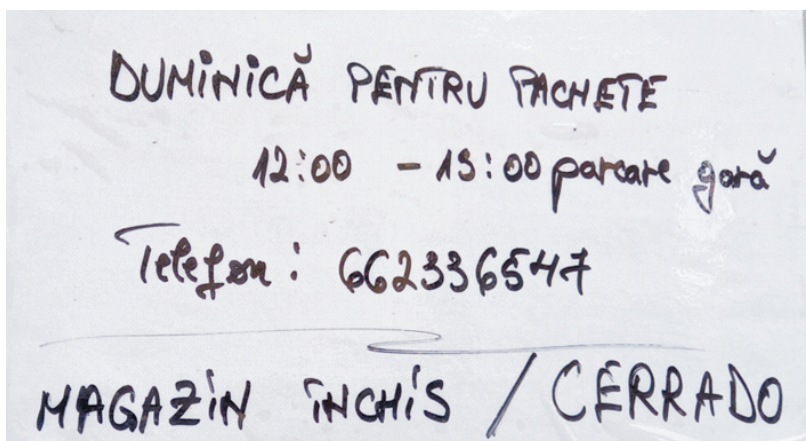 DUMINICĂ PENTRU PACHETE
12:00 - 13:00 parcare gară
Telefon: 662336547
MAGAZIN ÎNCHIS / CERRADO